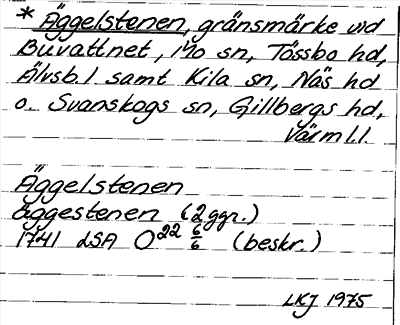 * Äggelstenen, gränsmärke vid
Buvattnet, Mo sn, Tössbo hd,
Älvsb.l samt Kila sn, Näs hd
o. Svanskogs sn, Gillbergs hd,
Värml.l.
Äggelstenen
äggestenen (2 ggr.)
1741 LSA O22 6/6 (beskr.)
LKJ 1975